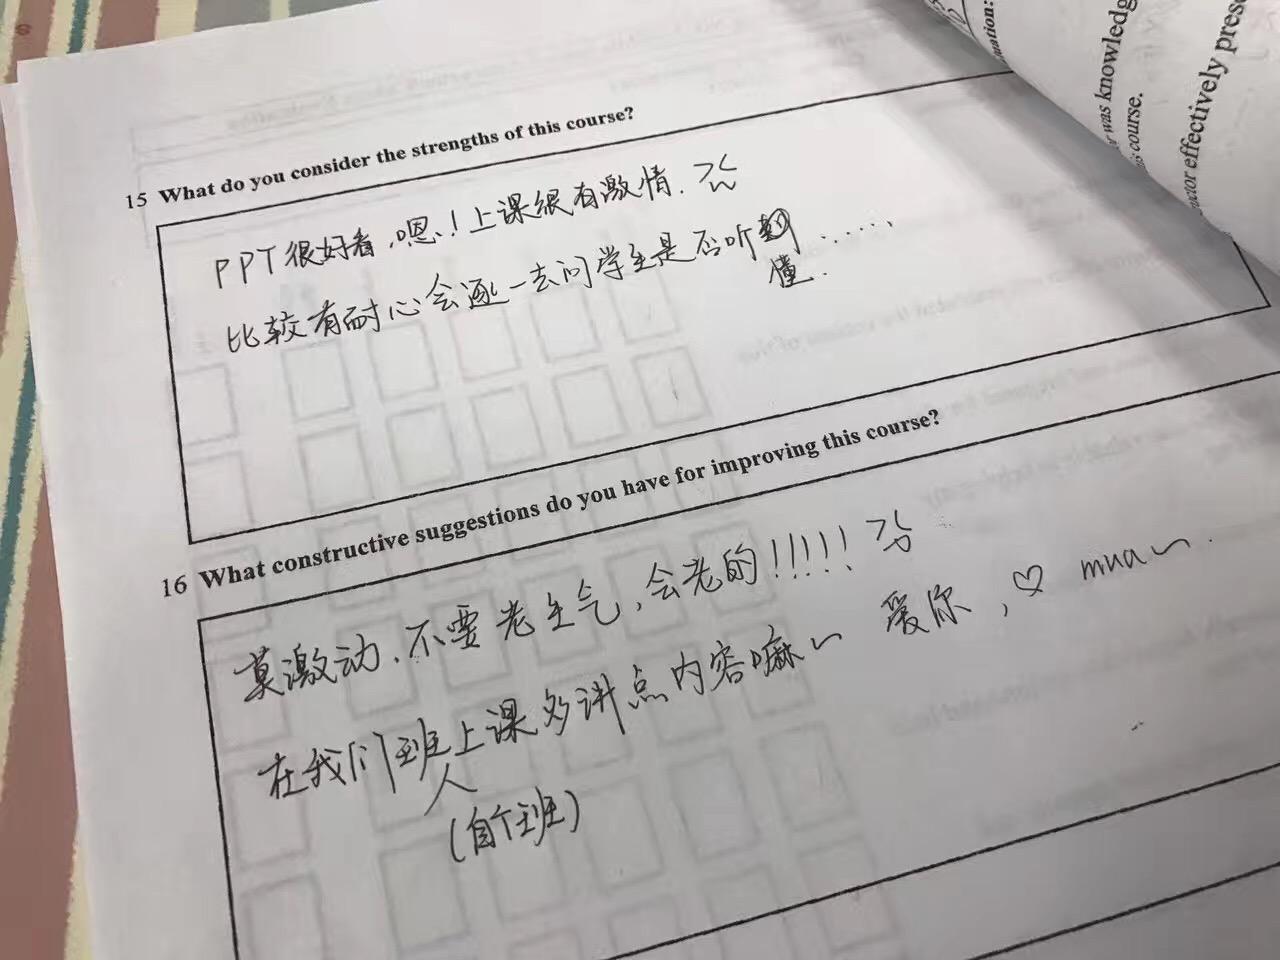 mation:
was knowledg
course.
ructor effectively prese
15 What do you consider the strengths of this course?
PPT很好看,嗯!上课很有激情.
比较有耐心会逐一去问学生是否听懂......
16 What constructive suggestions do you have for improving this course?
莫激动.不要老生气,会老的!!!!!
在我们班上课多讲点内容嘛~ 爱你,♡ mua~.
人
(自个班)